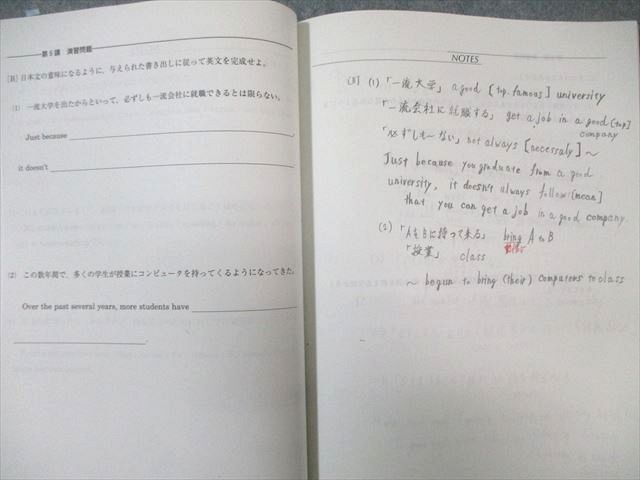 第5講 演習問題
[Ⅱ] 日本文の意味になるように、与えられた書き出しに従って英文を完成せよ。
(1) 一流大学を出たからといって、必ずしも一流会社に就職できるとは限らない。
Just because
it doesn't
(2) この数年間で、多くの学生が授業にコンピュータを持ってくるようになってきた。
Over the past several years, more students have
NOTES
(1) 「一流大学」 a good [top. famous] university
「一流会社に就職する」 get a job in a good [top]
company
「必ずしも~ない」 not always [necessaly] ~
Just because you graduate from a good
university, it doesn't always follow [mean]
that you can get a job in a good company.
(2) 「AをBに持って来る」 bring A to B
「授業」 class
~ begun to bring (their) computers to class